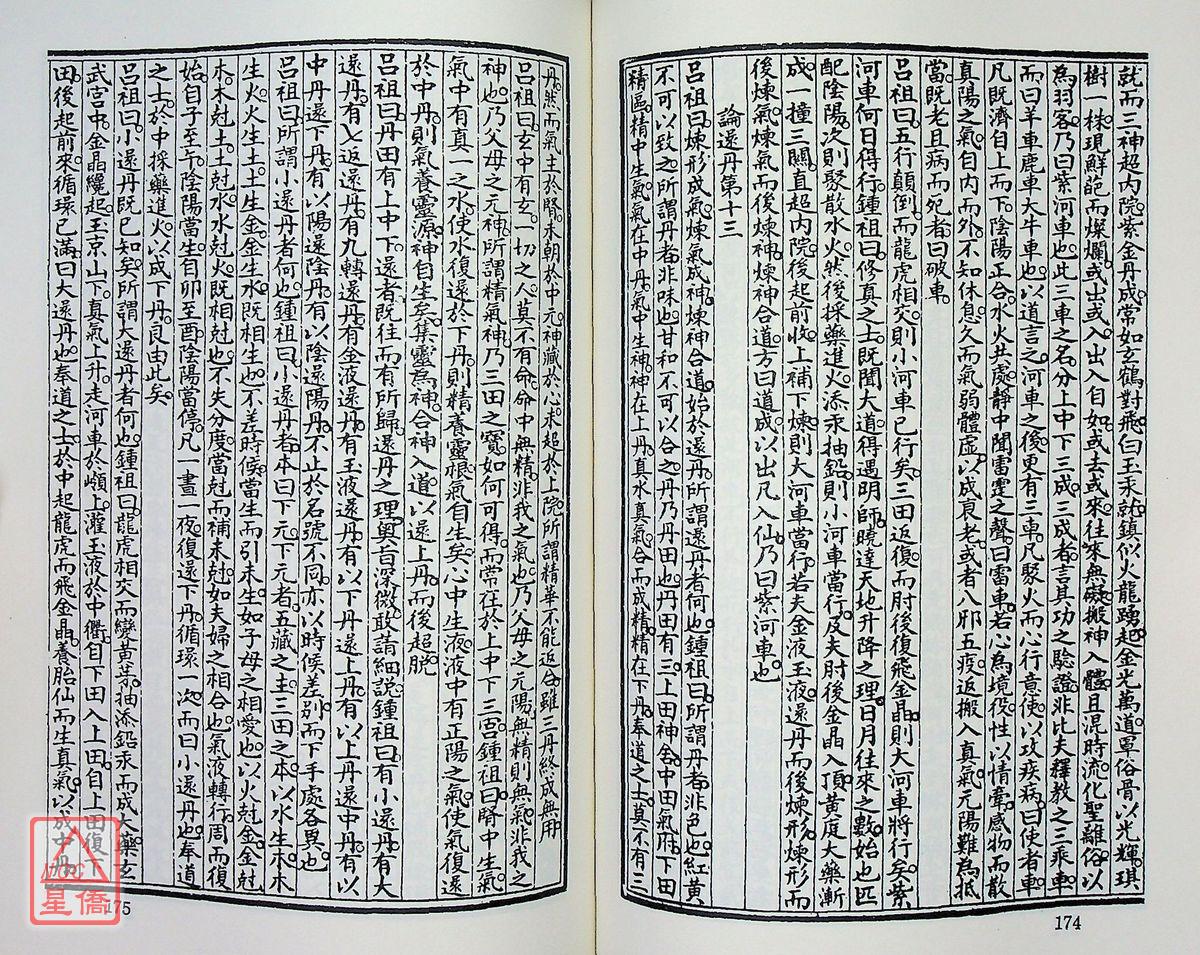 就而三神超内院紫金丹成常如玄鶴對飛白玉汞就鎮似火龍踴起金光萬道罩俗骨以光輝琪
樹一株現鮮葩而燦爛或出或入出入自如或去或來往來無礙搬神入體且混時流化聖離俗以
為羽客乃曰紫河車也此三車之名分上中下三成三成者言其功之驗證非比夫釋教之三乘車
而曰羊車鹿車大牛車也以道言之河車之後更有三車凡聚火而心行意使以攻疾病曰使者車
凡既濟自上而下陰陽正合水火共處靜中聞雷霆之聲曰雷車若心為境役性以情牽感物而散
真陽之氣自内而外不知休息久而氣弱體虛以成衰老或者八邪五疫返搬入真氣元陽難為抵
當既老且病而死者曰破車
呂祖曰五行顛倒而龍虎相交則小河車已行矣三田返復而肘後復飛金晶則大河車將行矣紫
河車何日得行鍾祖曰修真之士既聞大道得遇明師曉達天地升降之理日月往來之數始也匹
配陰陽次則聚散水火然後採藥進火添汞抽鉛則小河車當行及夫肘後金晶入頂黃庭大藥漸
成一撞三關直超内院後起前收上補下煉則大河車當行若夫金液玉液還丹而後煉形煉形而
後煉氣煉氣而後煉神煉神合道方曰道成以出凡入仙乃曰紫河車也
論還丹第十三
呂祖曰煉形成氣煉氣成神煉神合道始於還丹所謂還丹者何也鍾祖曰所謂丹者非色也紅黃
不可以致之所謂丹者非味也甘和不可以合之丹乃丹田也丹田有三上田神舍中田氣府下田
精區精中生氣氣在中丹氣中生神神在上丹真水真氣合而成精精在下丹奉道之士莫不有三
174
丹然而氣主於腎未朝於中元神藏於心未超於上院所謂精華不能返合雖三丹終成無用
呂祖曰玄中有玄一切之人莫不有命命中無精非我之氣也乃父母之元陽無精則無氣非我之
神也乃父母之元神所謂精氣神乃三田之寶如何可得而常在於上中下三宮鍾祖曰腎中生氣
氣中有真一之水使水復還於下丹則精養靈根氣自生矣心中生液液中有正陽之氣使氣復還
於中丹則氣養靈源神自生矣集靈為神合神入道以還上丹而後超脫
呂祖曰丹田有上中下還者既往而有所歸還丹之理奧旨深微敢請細說鍾祖曰有小還丹有大
還丹有七返還丹有九轉還丹有金液還丹有玉液還丹有以下丹還上丹有以上丹還中丹有以
中丹還下丹有以陽還陰丹有以陰還陽丹不止於名號不同亦以時候差別而下手處各異也
呂祖曰所謂小還丹者何也鍾祖曰小還丹者本曰下元下元者五藏之主三田之本以水生木木
生火火生土土生金金生水既相生也不差時候當生而引未生如子母之相愛也以火尅金金尅
木木尅土土尅水水尅火既相尅也不失分度當尅而補未尅如夫婦之相合也氣液轉行周而復
始自子至午陰陽當生自卯至酉陰陽當停凡一晝一夜復還下丹循環一次而曰小還丹也奉道
之士於中採藥進火以成下丹良由此矣
呂祖曰小還丹既已知矣所謂大還丹者何也鍾祖曰龍虎相交而變黃芽抽添鉛汞而成大藥玄
武宮中金晶纔起玉京山下真氣上升走河車於嶺上灌玉液於中衢自下田入上田自上田復下
田後起前來循環已滿曰大還丹也奉道之士於中起龍虎而飛金晶養胎仙而生真氣以成中丹
175
星僑